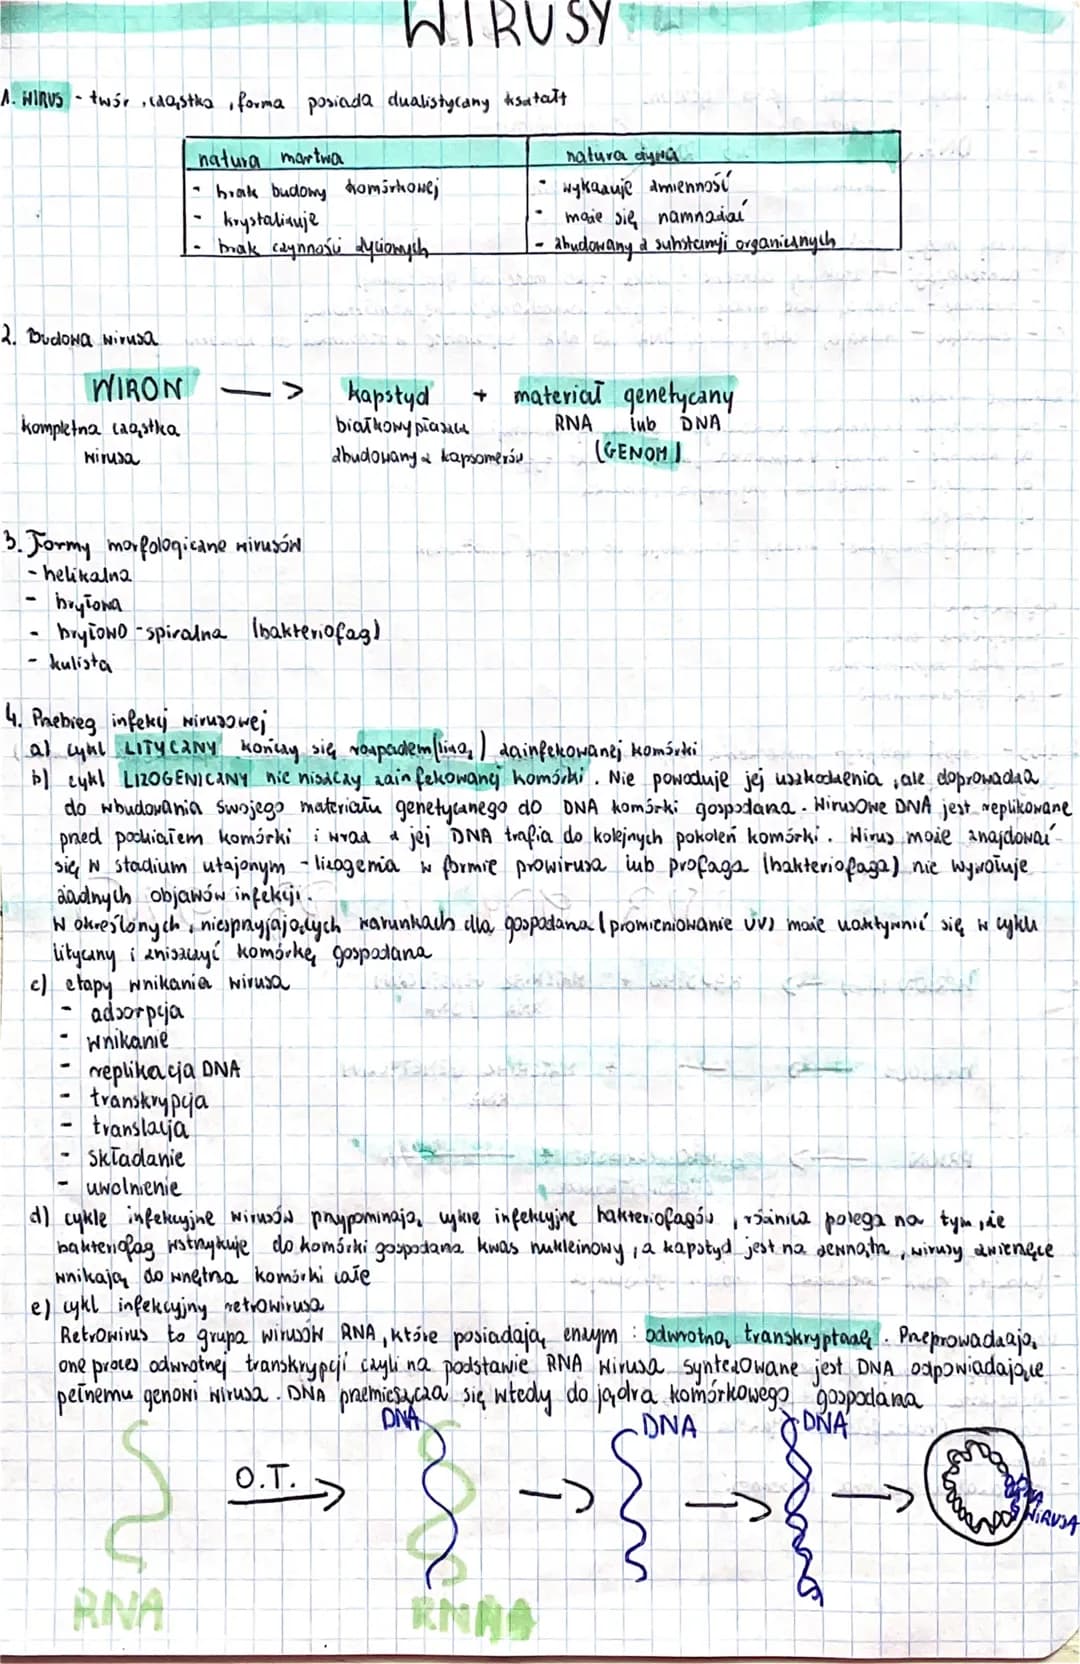 WIRUSY
1. WIRUS - twór, cząstka, forma posiada dualistyczny kształt
natura martwa
- brak budowy komórkowej
- krystalizuje
- brak czynności życiowych
natura żywa
- wykazuje zmienność
- może się namnażać
- zbudowany z substancji organicznych
2. Budowa wirusa
WIRON —> kapstyd + materiał genetyczny
kompletna cząstka białkowy płaszcz RNA lub DNA
wirusa zbudowany z kapsomerów (GENOM)
3. Formy morfologiczne wirusów
- helikalna
- bryłowa
- bryłowo-spiralna (bakteriofag)
- kulista
4. Przebieg infekcji wirusowej
a) cykl LITYCZNY kończy się rozpadem (lizą) zainfekowanej komórki
b) cykl LIZOGENICZNY nie niszczy zainfekowanej komórki. Nie powoduje jej uszkodzenia, ale doprowadza
do wbudowania swojego materiału genetycznego do DNA komórki gospodarza. Wirusowe DNA jest replikowane
przed podziałem komórki i wraz z jej DNA trafia do kolejnych pokoleń komórki. Wirus może znajdować
się w stadium utajonym - lizogenia w formie prowirusa lub profaga (bakteriofaga) nie wywołuje
żadnych objawów infekcji.
W określonych, niesprzyjających warunkach dla gospodarza (promieniowanie UV) może uaktywnić się w cyklu
lityczny i zniszczyć komórkę gospodarza
c) etapy wnikania wirusa
- adsorpcja
- wnikanie
- replikacja DNA
- transkrypcja
- translacja
- składanie
- uwolnienie
d) cykle infekcyjne wirusów przypominają cykle infekcyjne bakteriofagów, różnica polega na tym, że
bakteriofag wstrzykuje do komórki gospodarza kwas nukleinowy, a kapstyd jest na zewnątrz, wirusy zwierzęce
wnikają do wnętrza komórki całe
e) cykl infekcyjny retrowirusa
Retrowirus to grupa wirusów RNA, które posiadają enzym: odwrotną transkryptazę. Przeprowadzają
one proces odwrotnej transkrypcji czyli na podstawie RNA wirusa syntezowane jest DNA odpowiadające
pełnemu genowi wirusa. DNA przemieszcza się wtedy do jądra komórkowego gospodarza
DNA DNA DNA
O.T.
DNA
WIRUSA
RNA